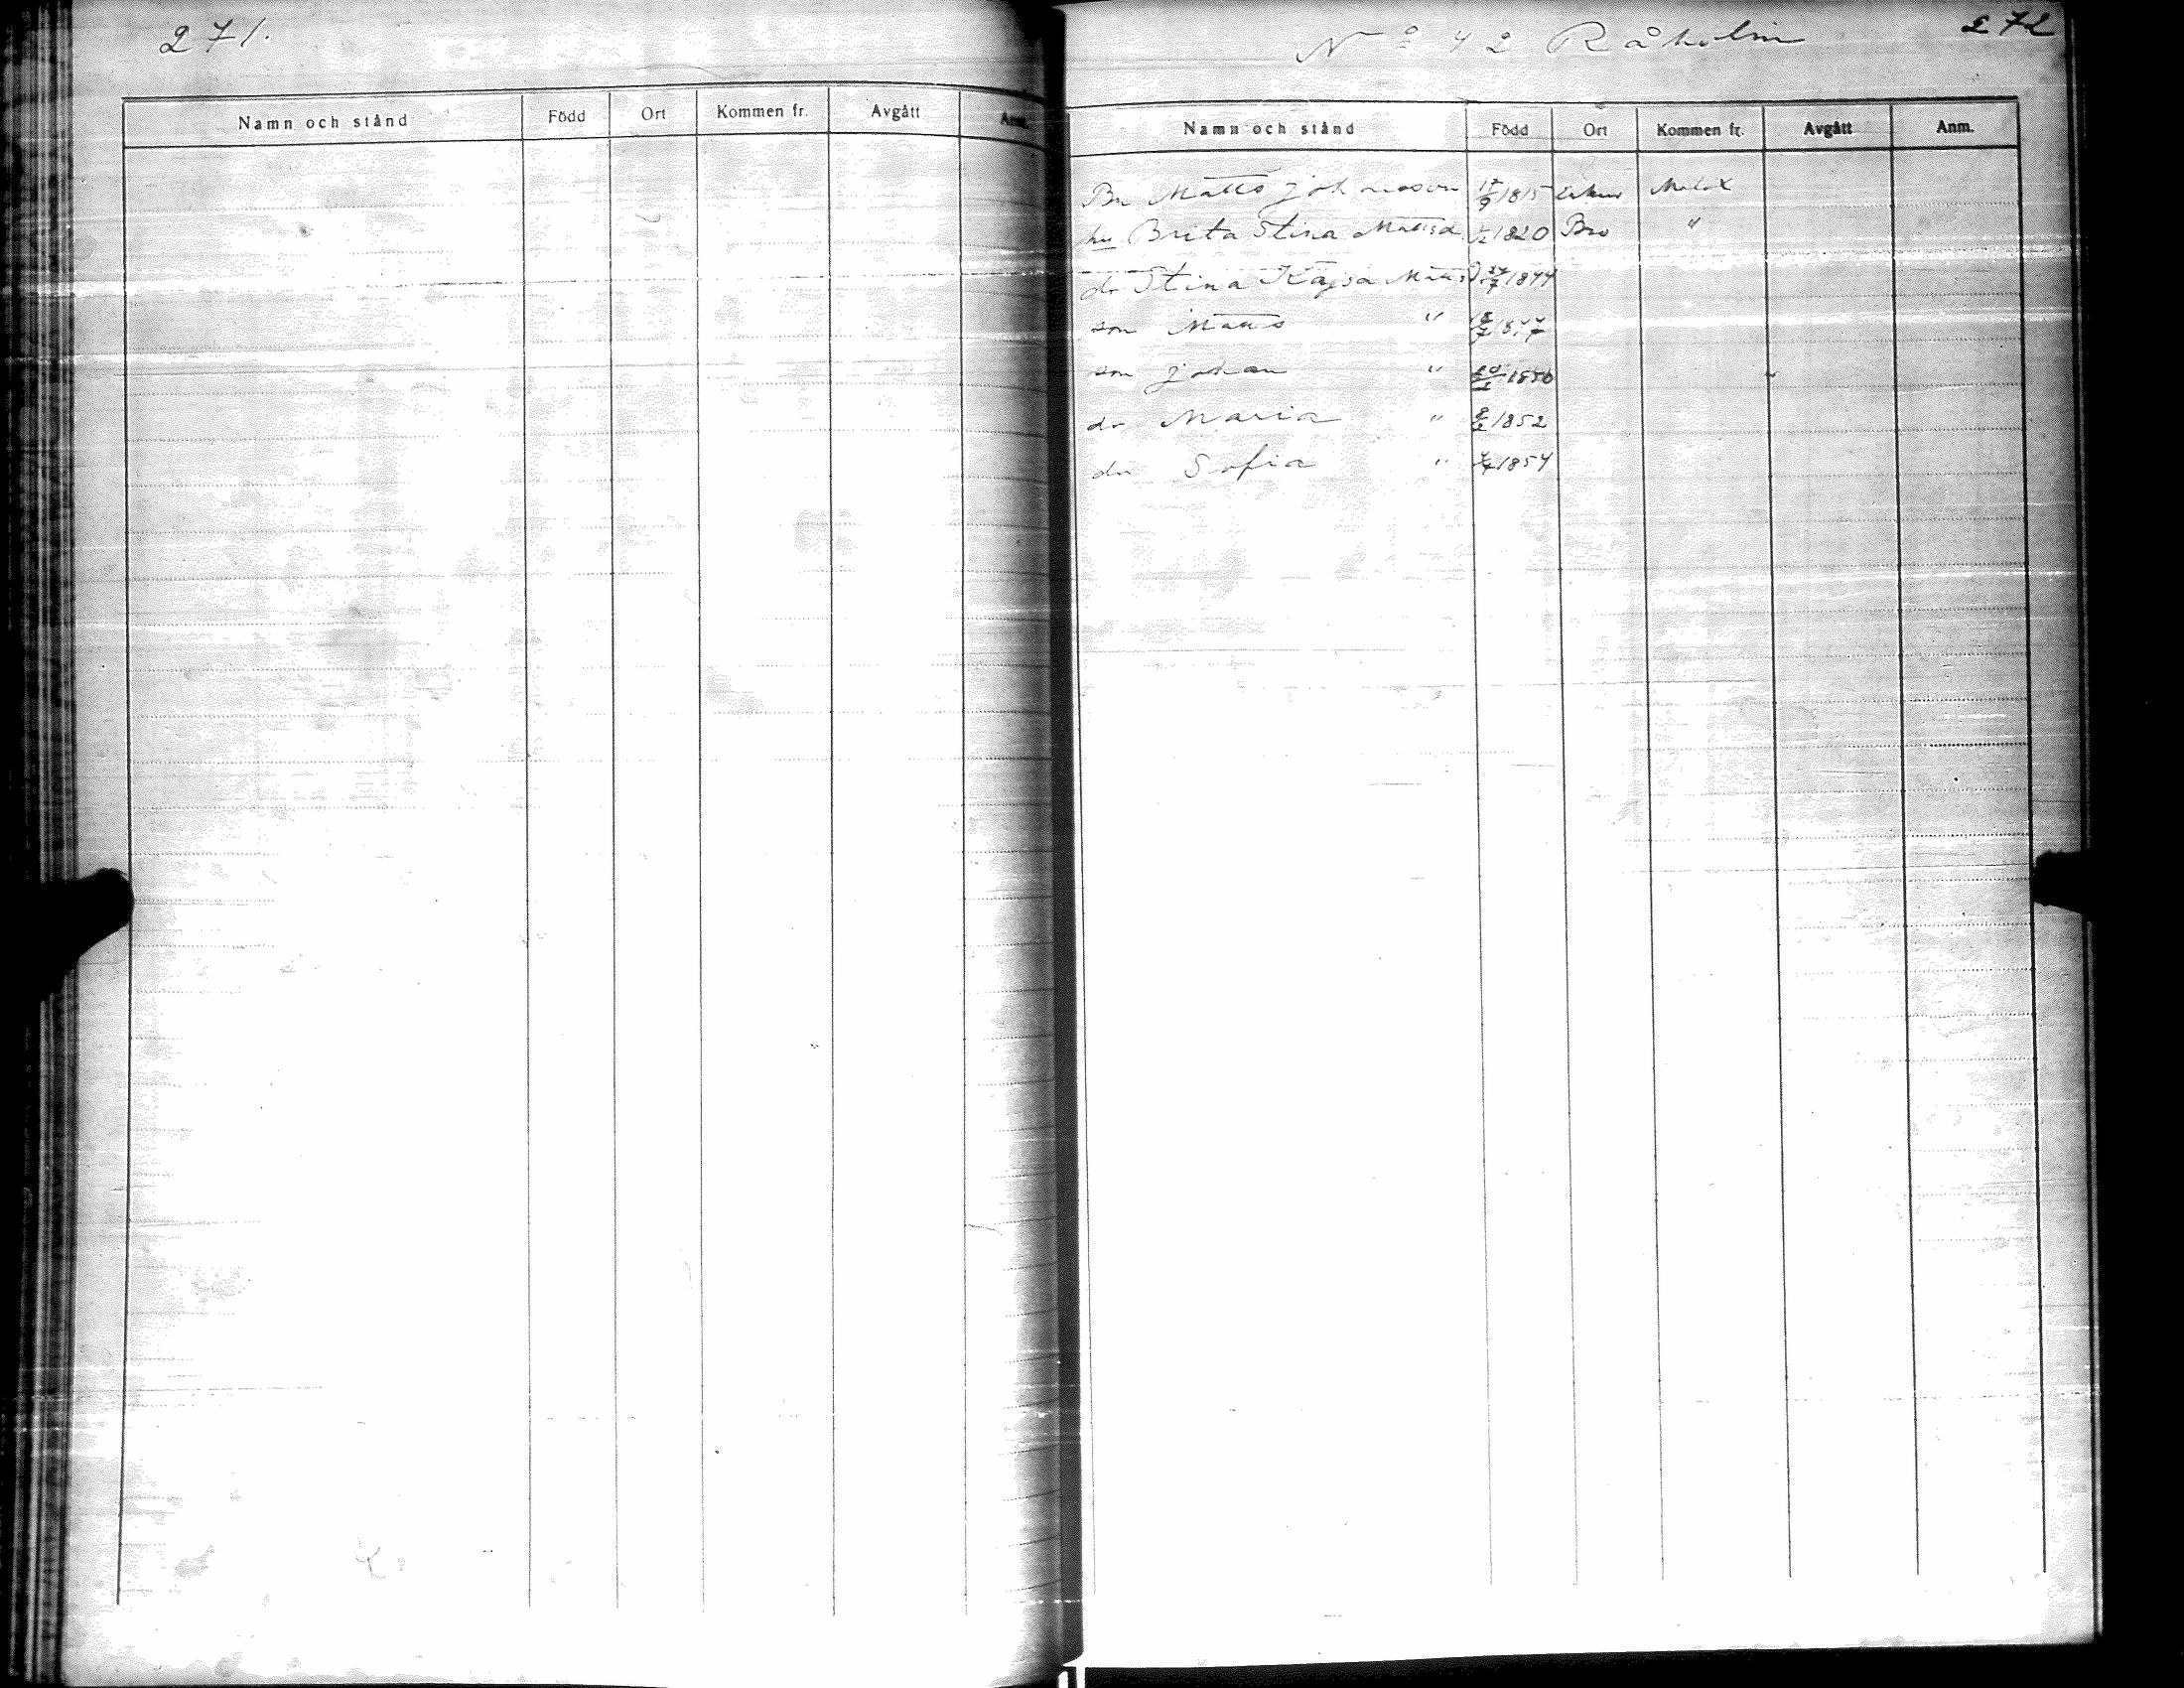 271.
Namn och stånd Född Ort Kommen fr. Avgått Anm.
272
Nº 42 Råholm
Namn och stånd Född Ort Kommen fr. Avgått Anm.
Bn Matts Johansson 17/9 1815 Malax
hu Brita Stina Mattsd 1820 Bro "
dr Stina Kajsa Matts 1844
son Matts "
son Johan " 1850
dr Maria " 1852
dr Sofia " 1854